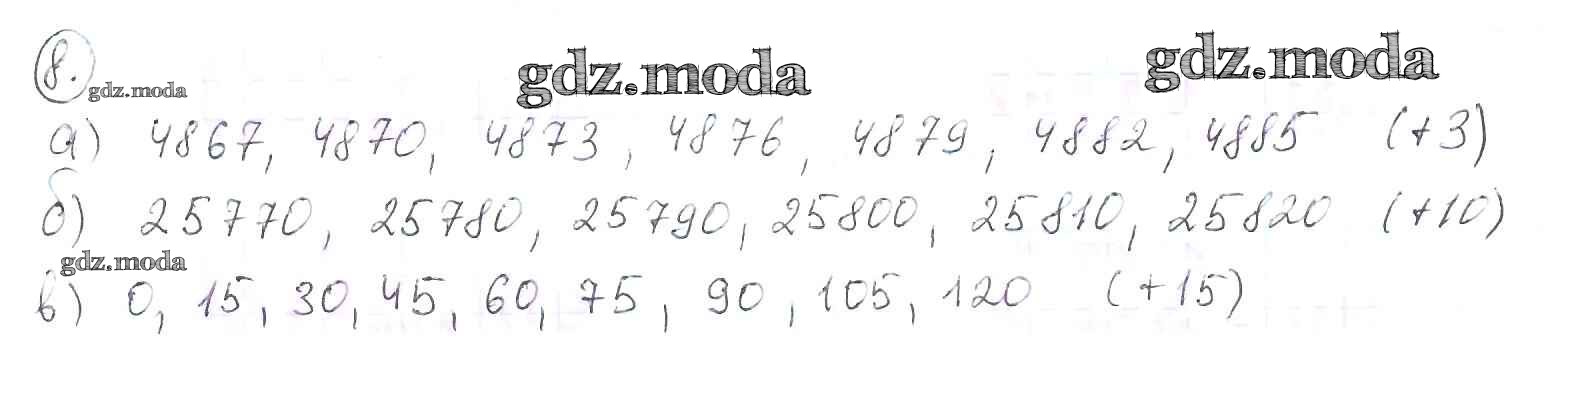 8.
gdz.moda
gdz.moda
gdz.moda
а) 4867, 4870, 4873, 4876, 4879, 4882, 4885 (+3)
б) 25770, 25780, 25790, 25800, 25810, 25820 (+10)
gdz.moda
в) 0, 15, 30, 45, 60, 75, 90, 105, 120 (+15)